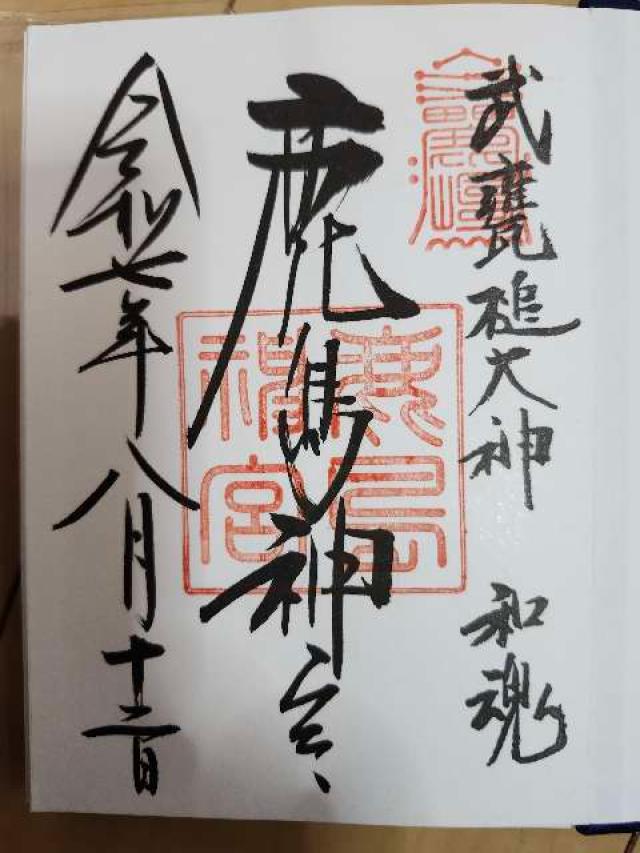 武甕槌大神 和魂
鹿島神宮
令和七年八月十二日
鹿島
神宮